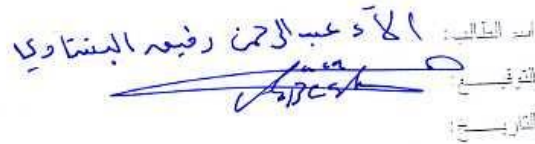 اسم الطالب: الآء عبد الرحمن رفيق البشتاوي
التوقيع:
التاريخ: